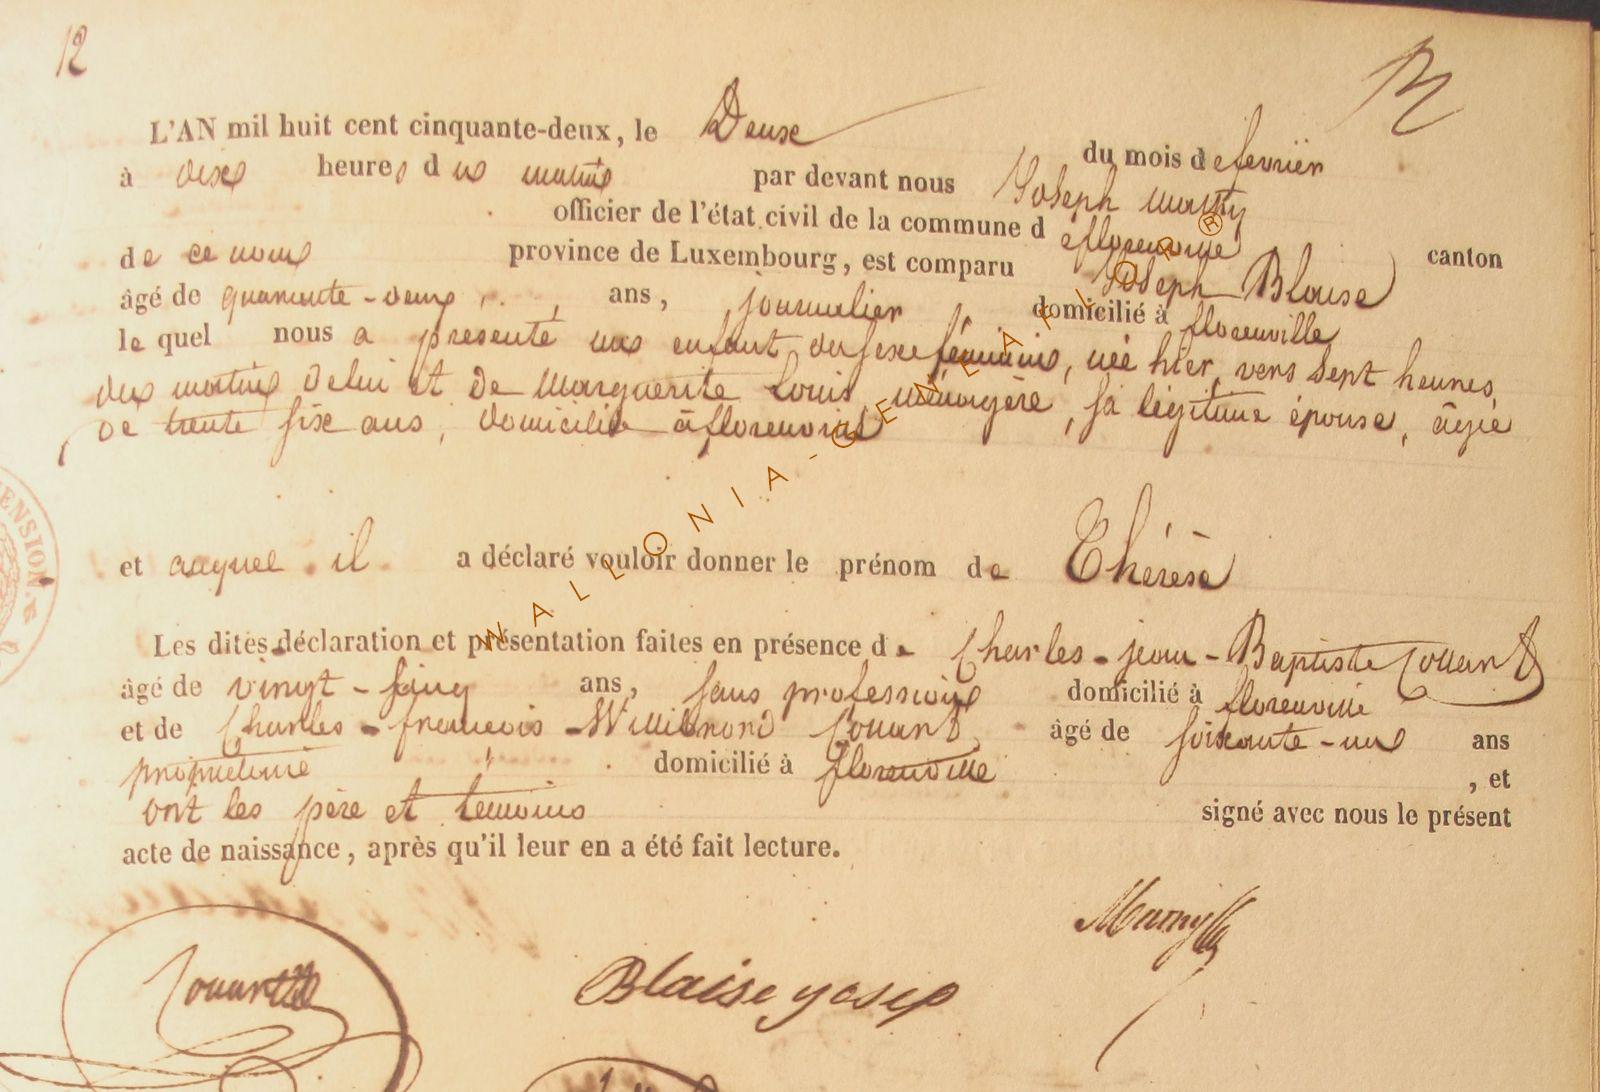 12
L'AN mil huit cent cinquante-deux, le Deuse du mois de fevrier
à dix heures du matin par devant nous Joseph
officier de l'état civil de la commune de florenville canton
de ce nom province de Luxembourg, est comparu Joseph Blaise
âgé de quarante-deux ans, journalier domicilié à florenville
le quel nous a presenté un enfant du sexe féminin, née hier, vers sept heures
du matin de lui et de Marguerite Louis ménagère, sa légitime épouse, âgée
de trente six ans, domicilié à florenville
et auquel il a déclaré vouloir donner le prénom de Thérèse
Les dites déclaration et présentation faites en présence de Charles-jean-Baptiste
âgé de vingt-sinq ans, sans profession domicilié à florenville
et de Charles-francois-Willibrord âgé de soixante-un ans
proprietaire domicilié à florenville , et
ont les père et temoins signé avec nous le présent
acte de naissance, après qu'il leur en a été fait lecture.
Blaise yosep
WALLONIA-GENEAFLOR ®